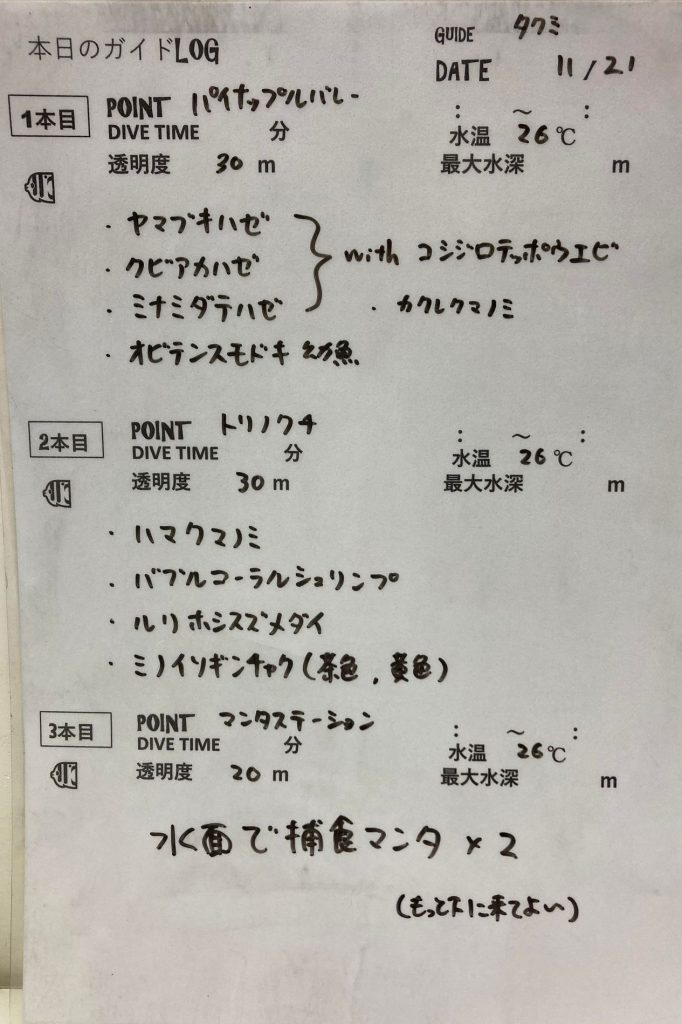 本日のガイドLOG
GUIDE タクミ
DATE 11/21
1本目 POINT パイナップルバレー
DIVE TIME 分 : ～ :
水温 26℃
透明度 30 m 最大水深 m
・ヤマブキハゼ
・クビアカハゼ with コシジロテッポウエビ
・ミナミダテハゼ ・カクレクマノミ
・オビテンスモドキ 幼魚
2本目 POINT トリノクチ
DIVE TIME 分 : ～ :
水温 26℃
透明度 30 m 最大水深 m
・ハマクマノミ
・バブルコーラルシュリンプ
・ルリホシスズメダイ
・ミノイソギンチャク(茶色, 黄色)
3本目 POINT マンタステーション
DIVE TIME 分 : ～ :
水温 26℃
透明度 20 m 最大水深 m
水面で捕食マンタ ×2
(もっと下に来てよい)